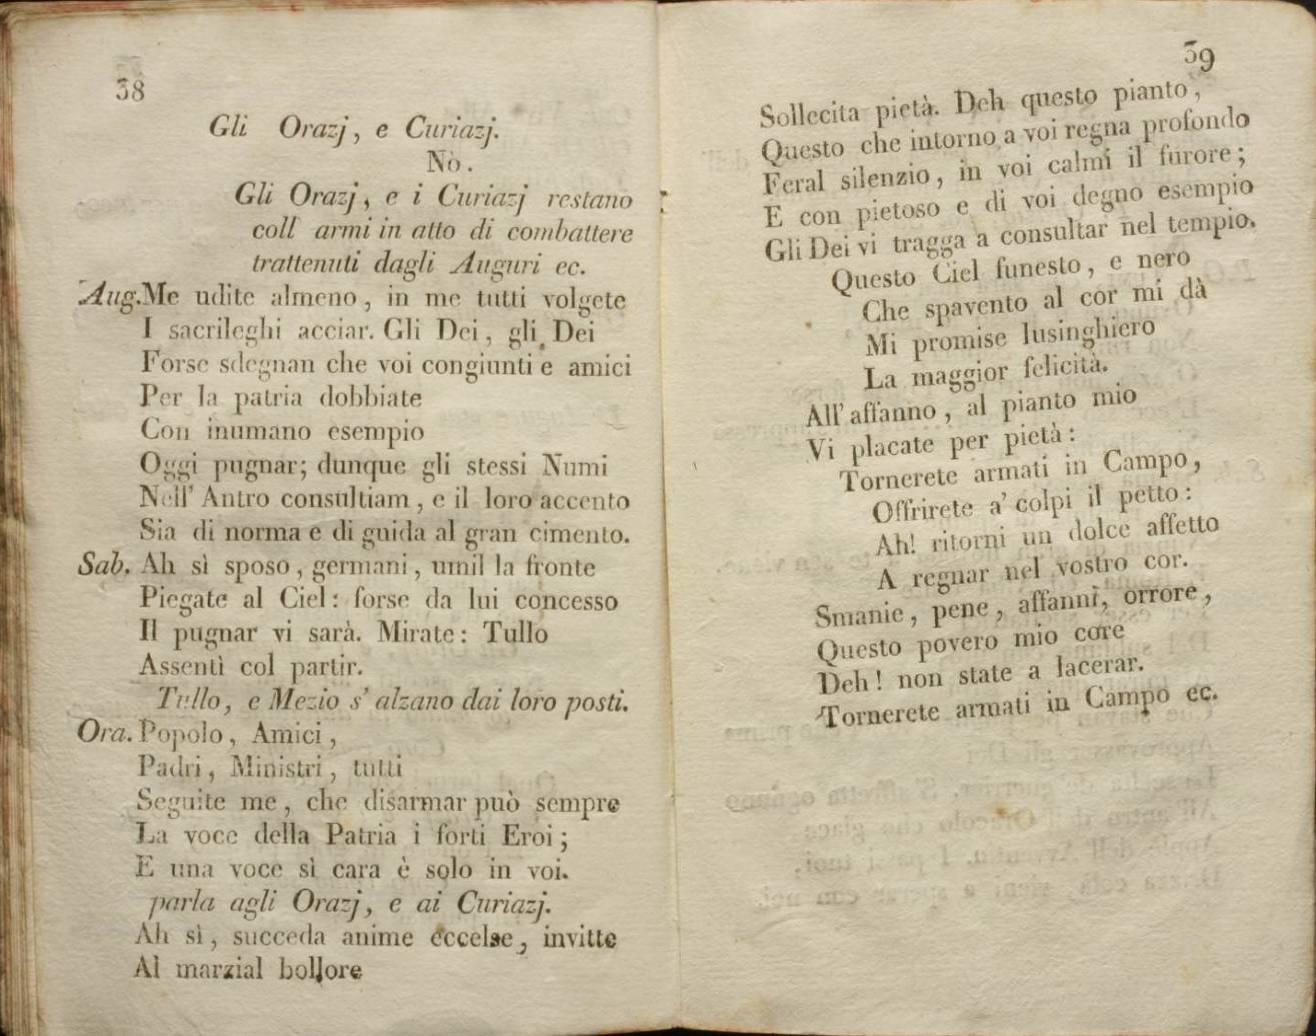 38
Gli Orazj, e Curiazj.
Nò.
Gli Orazj, e i Curiazj restano
coll' armi in atto di combattere
trattenuti dagli Auguri ec.
Aug. Me udite almeno, in me tutti volgete
I sacrileghi acciar. Gli Dei, gli Dei
Forse sdegnan che voi congiunti e amici
Per la patria dobbiate
Con inumano esempio
Oggi pugnar; dunque gli stessi Numi
Nell' Antro consultiam, e il loro accento
Sia di norma e di guida al gran cimento.
Sab. Ah sì sposo, germani, umil la fronte
Piegate al Ciel: forse da lui concesso
Il pugnar vi sarà. Mirate: Tullo
Assentì col partir.
Tullo, e Mezio s' alzano dai loro posti.
Ora. Popolo, Amici,
Padri, Ministri, tutti
Seguite me, che disarmar può sempre
La voce della Patria i forti Eroi;
E una voce sì cara è solo in voi.
parla agli Orazj, e ai Curiazj.
Ah sì, succeda anime eccelse, invitte
Al marzial bollore
39
Sollecita pietà. Deh questo pianto,
Questo che intorno a voi regna profondo
Feral silenzio, in voi calmi il furore;
E con pietoso e di voi degno esempio
Gli Dei vi tragga a consultar nel tempio.
Questo Ciel funesto, e nero
Che spavento al cor mi dà
Mi promise lusinghiero
La maggior felicità.
All' affanno, al pianto mio
Vi placate per pietà:
Tornerete armati in Campo,
Offrirete a' colpi il petto:
Ah! ritorni un dolce affetto
A regnar nel vostro cor.
Smanie, pene, affanni, orrore,
Questo povero mio core
Deh! non state a lacerar.
Tornerete armati in Campo ec.